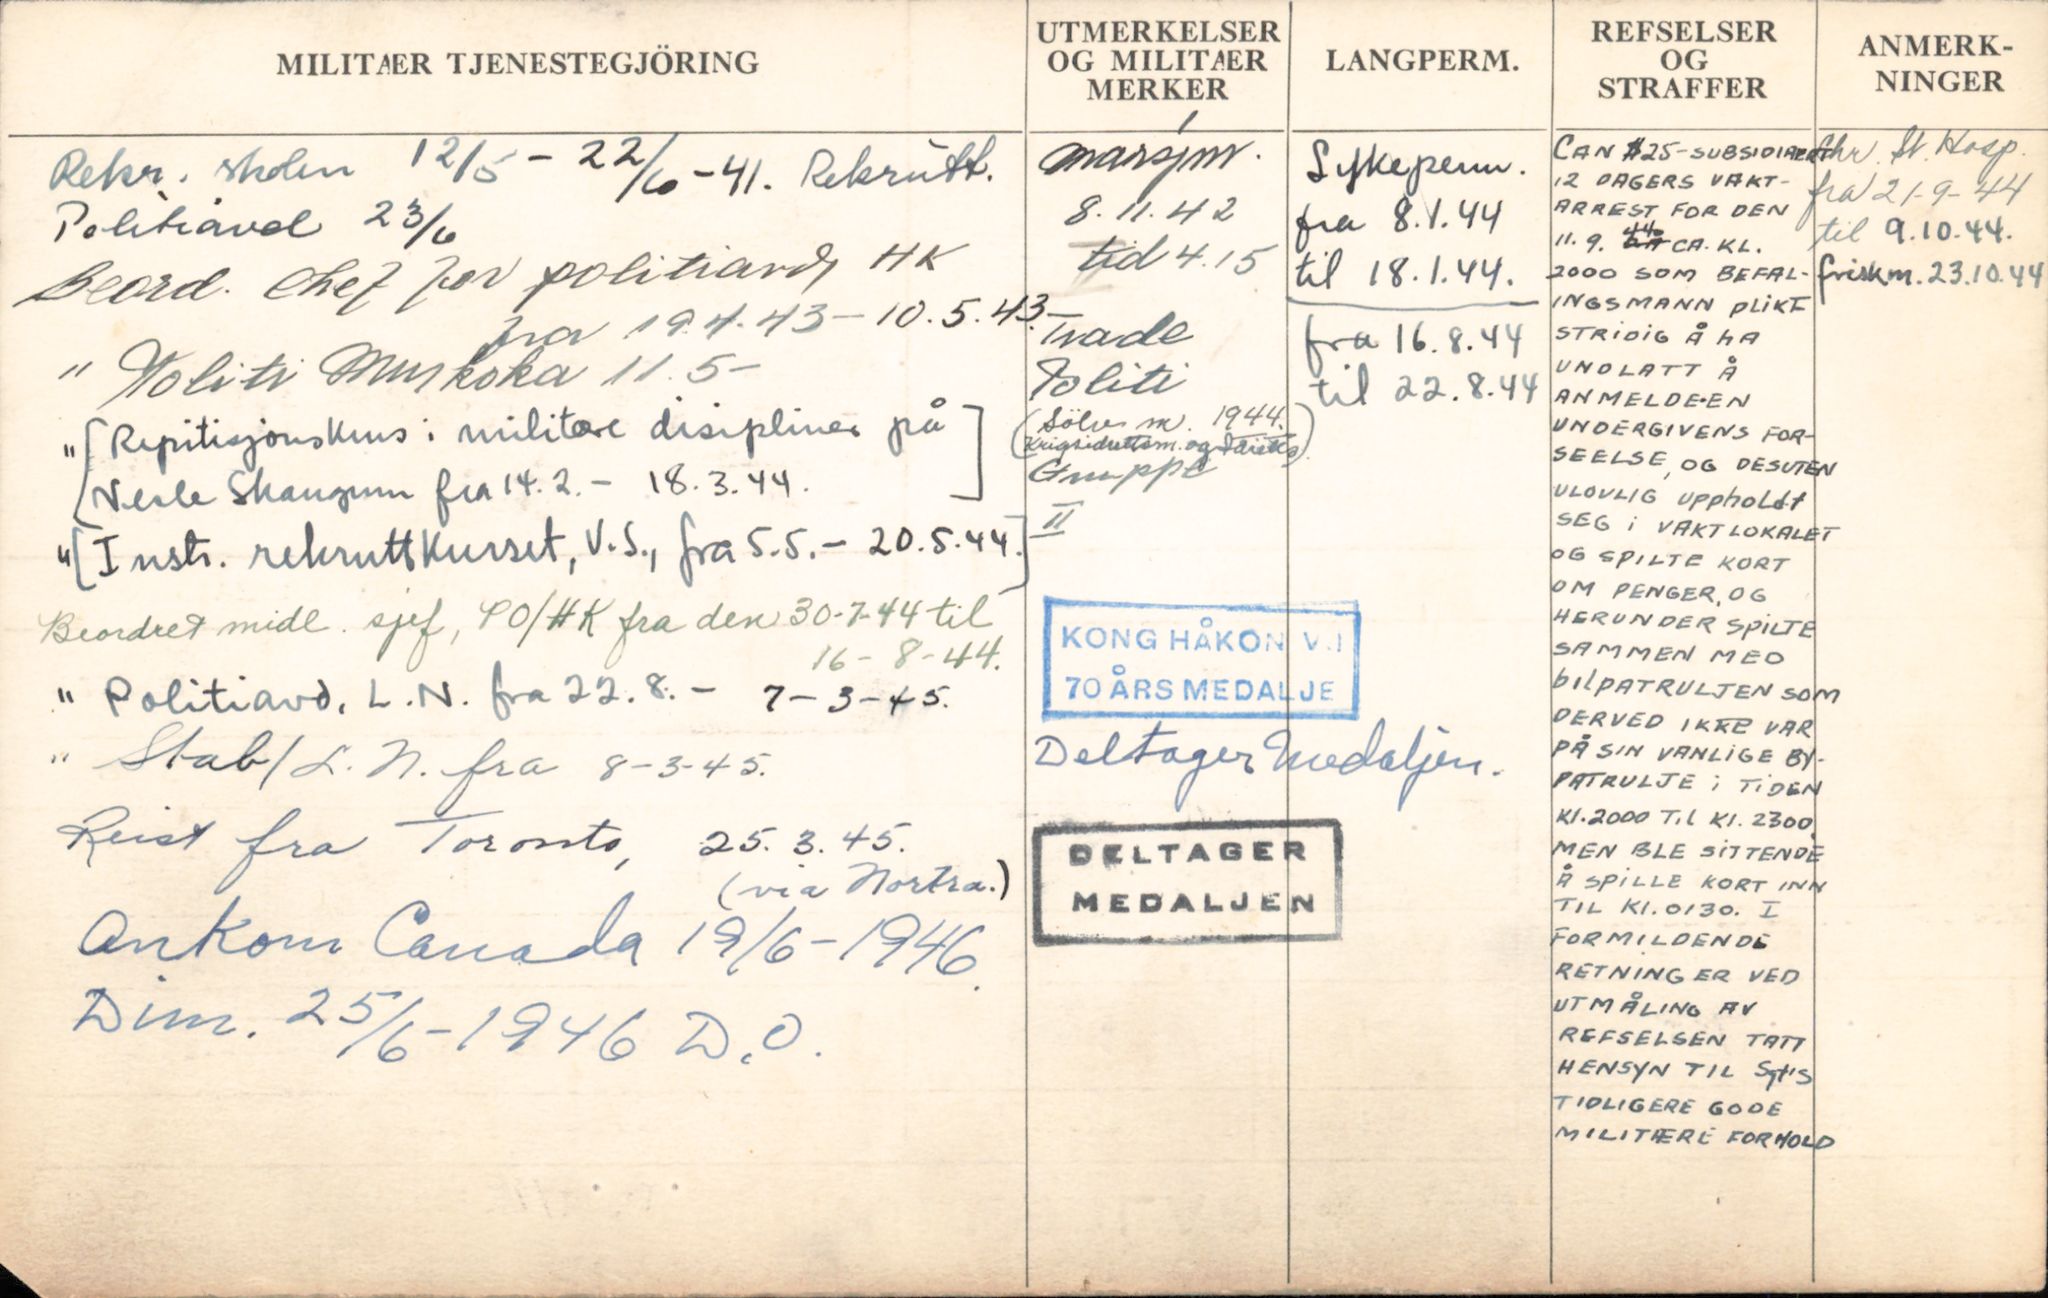 MILITÆR TJENESTEGJÖRING
Rekr. skolen 12/5 - 22/6 -41. Rekrutt.
Politiavd 23/6
Beord. chef for politiavd HK
fra 19.4.43 - 10.5.43.
" Politi Muskoka 11.5 -
" [Repitisjonskurs i militære disipliner på
Vesle Skaugum fra 14.2. - 18.3.44.]
" [Instr. rekruttkurset, V.S., fra 5.5. - 20.5.44.]
Beordret midl. sjef, PO/HK fra den 30-7-44 til
16-8-44.
" Politiavd. L.N. fra 22.8. - 7-3-45.
" Stab/L.N. fra 8-3-45.
Reist fra Toronto, 25.3.45.
(via Nortra.)
Ankom Canada 19/6-1946.
Dim. 25/6-1946 D.O.
UTMERKELSER
OG MILITÆR
MERKER
marsjm.
8.11.42
tid 4.15
Trade
Politi
(Sölv m. 1944.
Krigsidrettsm. og
Gruppe
II
KONG HÅKON VII
70 ÅRS MEDALJE
Deltager Medaljen.
DELTAGER
MEDALJEN
LANGPERM.
Sykeperm.
fra 8.1.44
til 18.1.44.
fra 16.8.44
til 22.8.44
REFSELSER
OG
STRAFFER
CAN $25-SUBSIDIÆRT
12 DAGERS VAKT-
ARREST FOR DEN
11.9. 44 CA. KL.
2000 SOM BEFAL-
INGSMANN PLIKT
STRIDIG Å HA
UNDLATT Å
ANMELDE EN
UNDERGIVENS FOR-
SEELSE, OG DESUTEN
ULOVLIG UPPHOLDT
SEG I VAKTLOKALET
OG SPILTE KORT
OM PENGER, OG
HERUNDER SPILTE
SAMMEN MED
BILPATRULJEN SOM
DERVED IKKE VAR
PÅ SIN VANLIGE BY-
PATRULJE I TIDEN
KL.2000 TIL KL. 2300,
MEN BLE SITTENDE
Å SPILLE KORT INN
TIL KL.0130. I
FORMILDENDE
RETNING ER VED
UTMÅLING AV
REFSELSEN TATT
HENSYN TIL Sgt's
TIDLIGERE GODE
MILITÆRE FORHOLD
ANMERK-
NINGER
Chr. St. Hosp.
fra 21-9-44
til 9.10.44.
friskm. 23.10.44